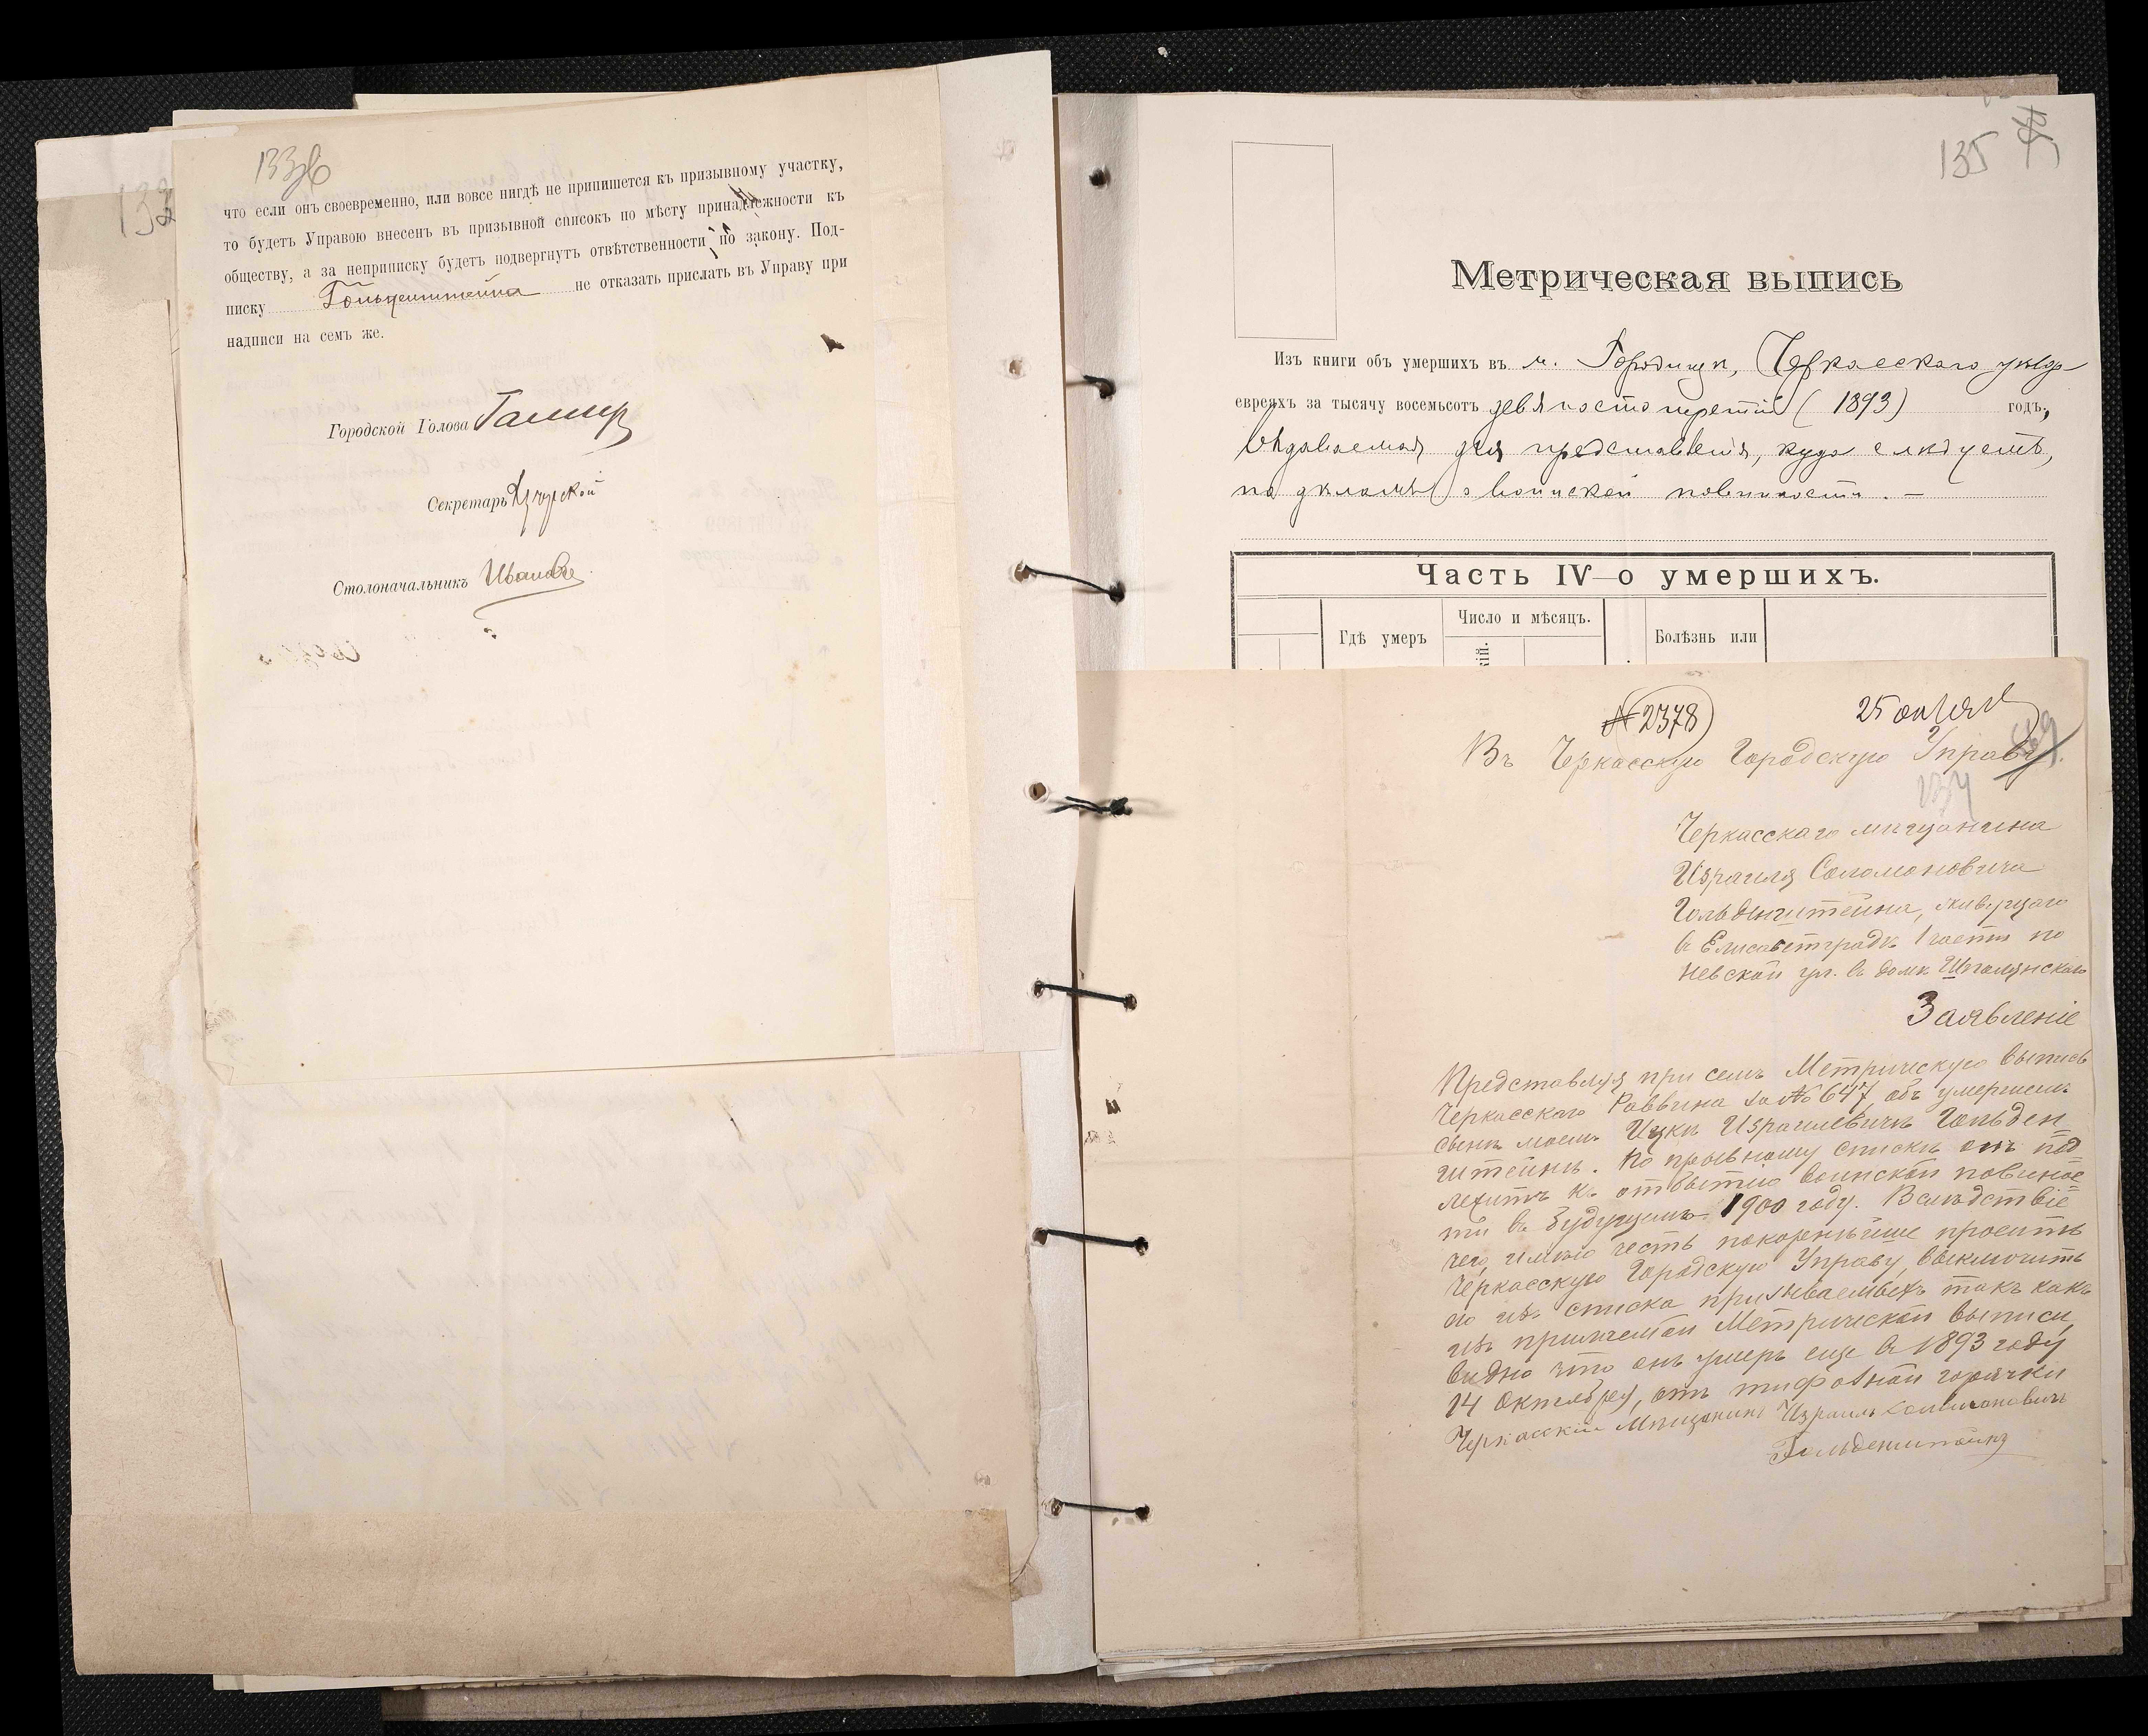 133об
132
что если онъ своевременно, или вовсе нигдѣ не припишется къ призывному участку,
то будетъ Управою внесенъ въ призывной списокъ по мѣсту принадлежности къ
обществу, а за неприписку будетъ подвергнутъ отвѣтственности по закону. Под-
писку Гольденштейна не отказать прислать въ Управу при
надписи на семъ же.
Городской Голова
Секретарь
Столоначальникъ Ивановъ
135
Метрическая выпись
Изъ книги объ умершихъ въ м. Городищѣ, Черкасскаго уѣзда
евреяхъ за тысячу восемьсотъ девяносто третій (1893) годъ,
выдаваемая для представленія, куда слѣдуетъ,
по дѣламъ о воинской повинности. —
Часть IV—о умершихъ.
Гдѣ умеръ
Число и мѣсяцъ.
Болѣзнь или
кій.
№ 2378
25 апрѣля
Въ Черкасскую Городскую Управу.
134
Черкасскаго мѣщанина
Израиля Соломоновича
Гольденштейна, живущаго
въ Елисаветградѣ 1 части по
Невской ул. въ домѣ Шполянскаго
Заявленіе
Представляя при семъ Метрическую выпись
Черкасскаго Раввина за № 647, объ умершемъ
сынѣ моемъ Ицкѣ Израилевичѣ Гольден
штейнѣ. По призывному списку онъ под
лежитъ къ отбытію воинской повинос
ти въ будущемъ 1900 году. Вслѣдствіе
чего, имѣю честь покорнѣйше просить
Черкасскую Городскую Управу, выключить
его изъ списка призываемыхъ такъ какъ
изъ прилагаемой Метрической выписи,
видно что онъ умеръ еще въ 1893 году
14 Октября, отъ тифозной горячки
Черкасскій Мѣщанинъ Израиль Соломоновичъ
Гольденштейнъ